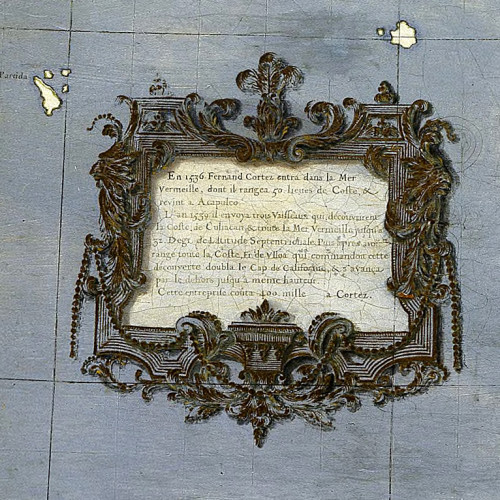 Partida
En 1536 Fernand Cortez entra dans la Mer
Vermeille, dont il rangea 50 lieües de Coste, &
revint a Acapulco.
L'an 1539 il envoya trois Vaisseaux qui découvrirent
la Coste de Culiacan, & toute la Mer Vermeille jusqu'a
32 Degr. de Latitude Septentrionale. Puis apres avoir
rangé toute la Coste, Fr. de Ulloa qui commandoit cette
découverte doubla le Cap de Californie, & s'avança
par le dehors jusqu'a même hauteur.
Cette entreprise couta 400 mille a Cortez.